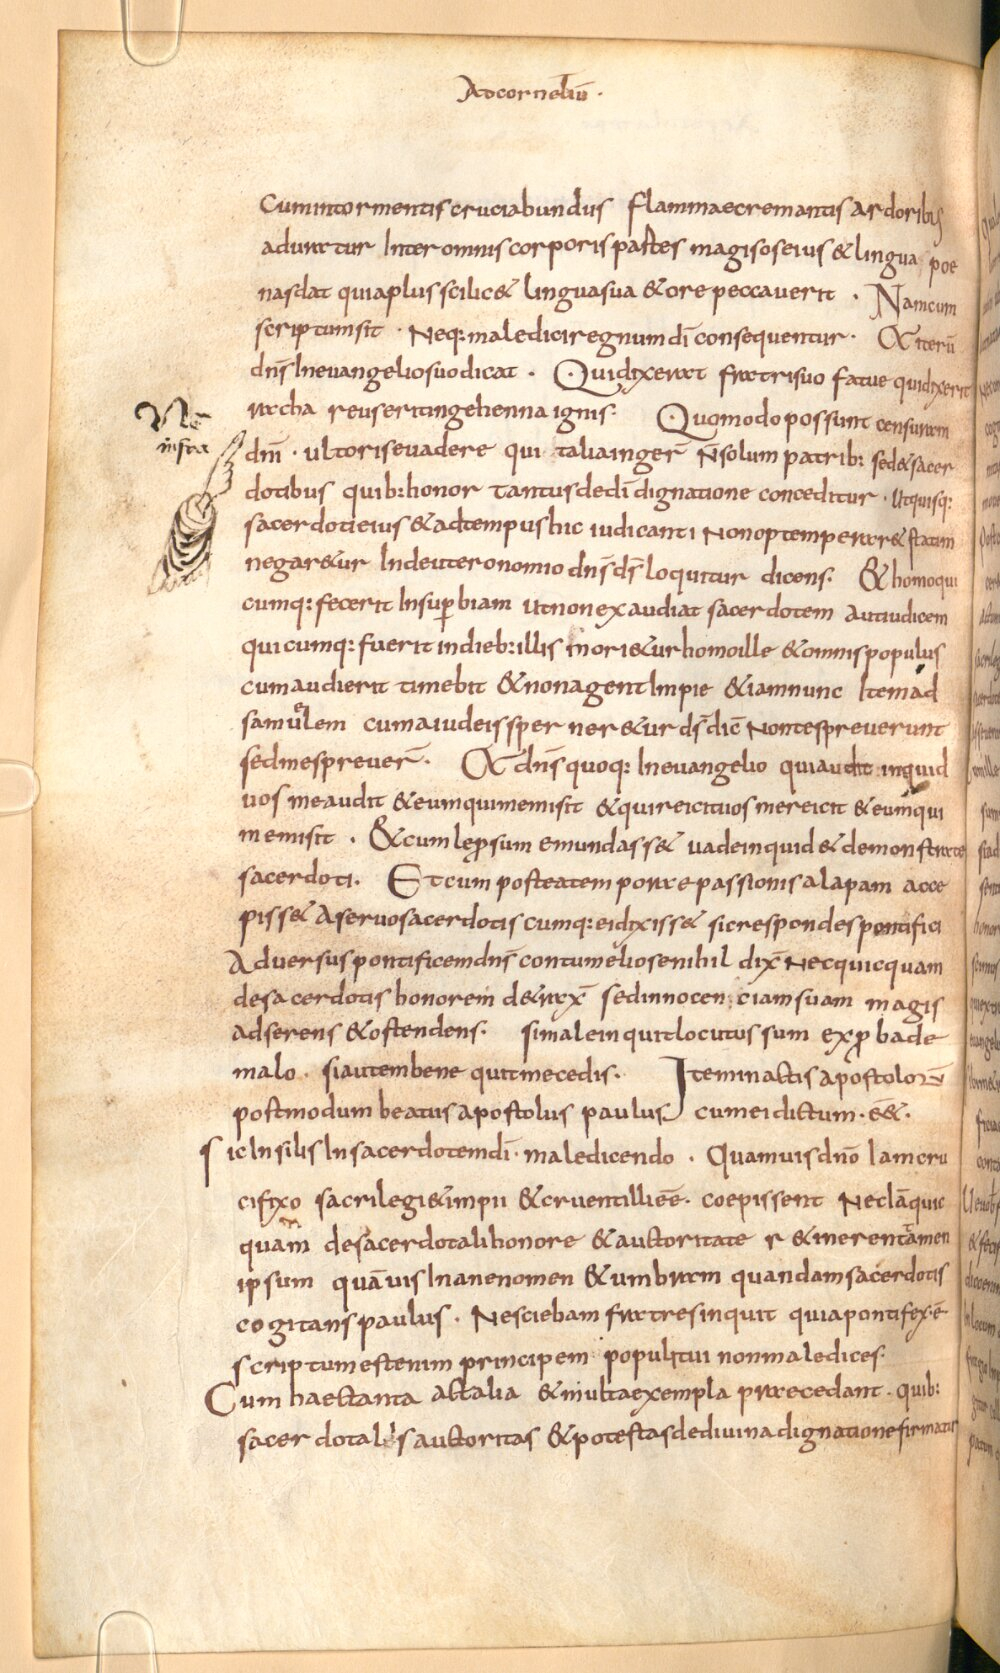 Ad corneliū ·
Cum intormentis cruciabundus flammae cremantis ardoribus
aduratur Inter omnis corporis partes magis os eius & lingua poe
nas dat quia plus scilic& lingua sua & ore peccauerit · Nam cum
scriptum sit · Neq: maledici regnum dī consequentur · Et iterū
dn̄s In euangelio suo dicat · Qui dixerat fratri suo fatue qui dixerit
racha reus erit in gehenna ignis · Quomodo possunt censuram
Nō
infra
dn̄i · ultoris euadere qui talia inger̄ N̄ solum patrib: sed & sacer
dotibus quib: honor tantus de dī dignatione conceditur · Ut quisq:
sacerdoti eius & ad tempus hic iudicanti Non optemperar& statim
negar&ur In deuteronomio dn̄s ds̄ loquitur dicens · & homo qui
cumq: fecerit In superbiam ut non exaudiat sacerdotem aut iudicem
qui cumq: fuerit in dieb: illis mori&ur homo ille & omnis populus
cum audierit timebit & non agent Impie & iam nunc Item ad
samuelem cum a iudeis sperner&ur ds̄ dic̄ Non te spreuerunt
sed me spreuer̄ · Et dn̄s quoq: In euangelio qui audit inquid
uos me audit & eum qui me misit & qui reicit uos me reicit & eum qui
me misit · & cum leprosum emundass& uade inquid & demonstra te
sacerdoti · Et cum postea tempora e passionis alapam acce
piss& A seruo sacerdotis cumq: ei dixiss& sic respondes pontifici
Aduersus pontificem dn̄s contumeliose nihil dix̄ Nec quicquam
de sacerdotis honorem d&rax̄ sed innocenciam suam magis
adserens & ostendens · si male inquit locutus sum exprobra de
malo · si autem bene quit me cedis · Item in actis apostolorū
postmodum beatus apostolus paulus cum ei dictum · e&̄ ·
sic Insilis In sacerdotem dī · maledicendo · Quamuis dn̄o Iam cru
cifixo sacrilegi & impii & cruenti illi e&̄ · coepissent Nec Iā quic
quam de sacerdotali honore & auctoritate r&inerent tamen
ipsum quāuis Inane nomen & umbram quandam sacerdotis
cogitans paulus · Nesciebam fratres inquit quia pontifex ē
scriptum est enim principem populi tui non maledices ·
Cum haec tanta ac talia & multa exempla praecedant · quib:
sacerdotalis auctoritas & potestas de diuina dignatione firmatur